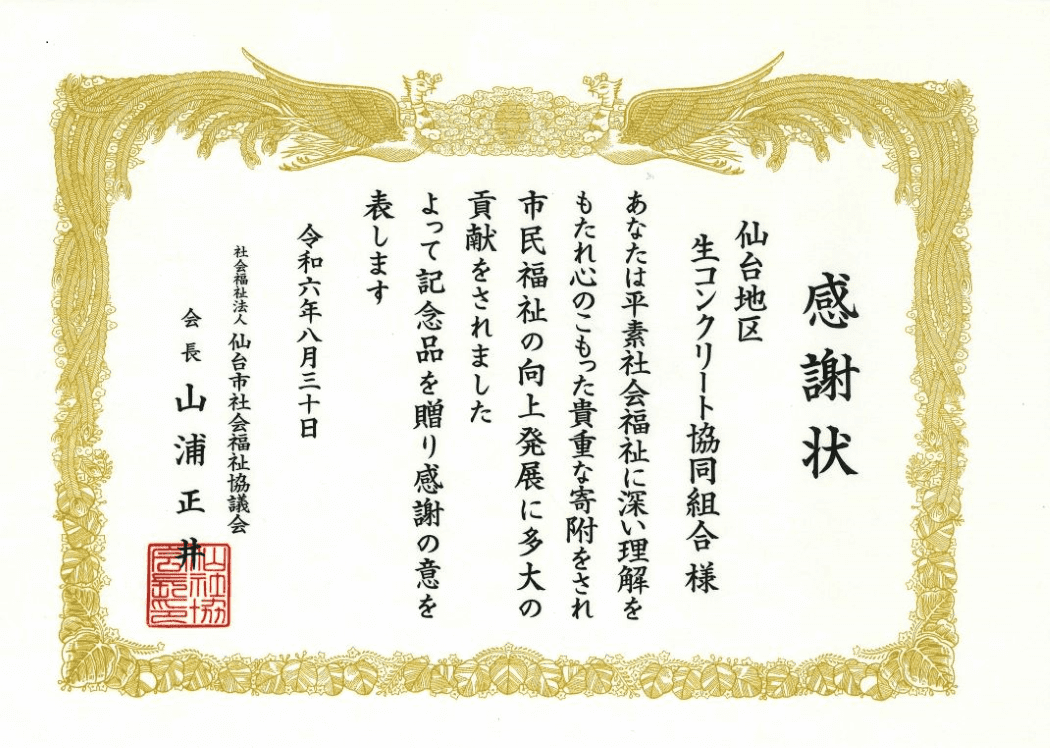 感謝状
仙台地区
生コンクリート協同組合様
あなたは平素社会福祉に深い理解を
もたれ心のこもった貴重な寄附をされ
市民福祉の向上発展に多大の
貢献をされました
よって記念品を贈り感謝の意を
表します
令和六年八月三十日
社会福祉法人 仙台市社会福祉協議会
会長 山浦正井
仙社協
会長印